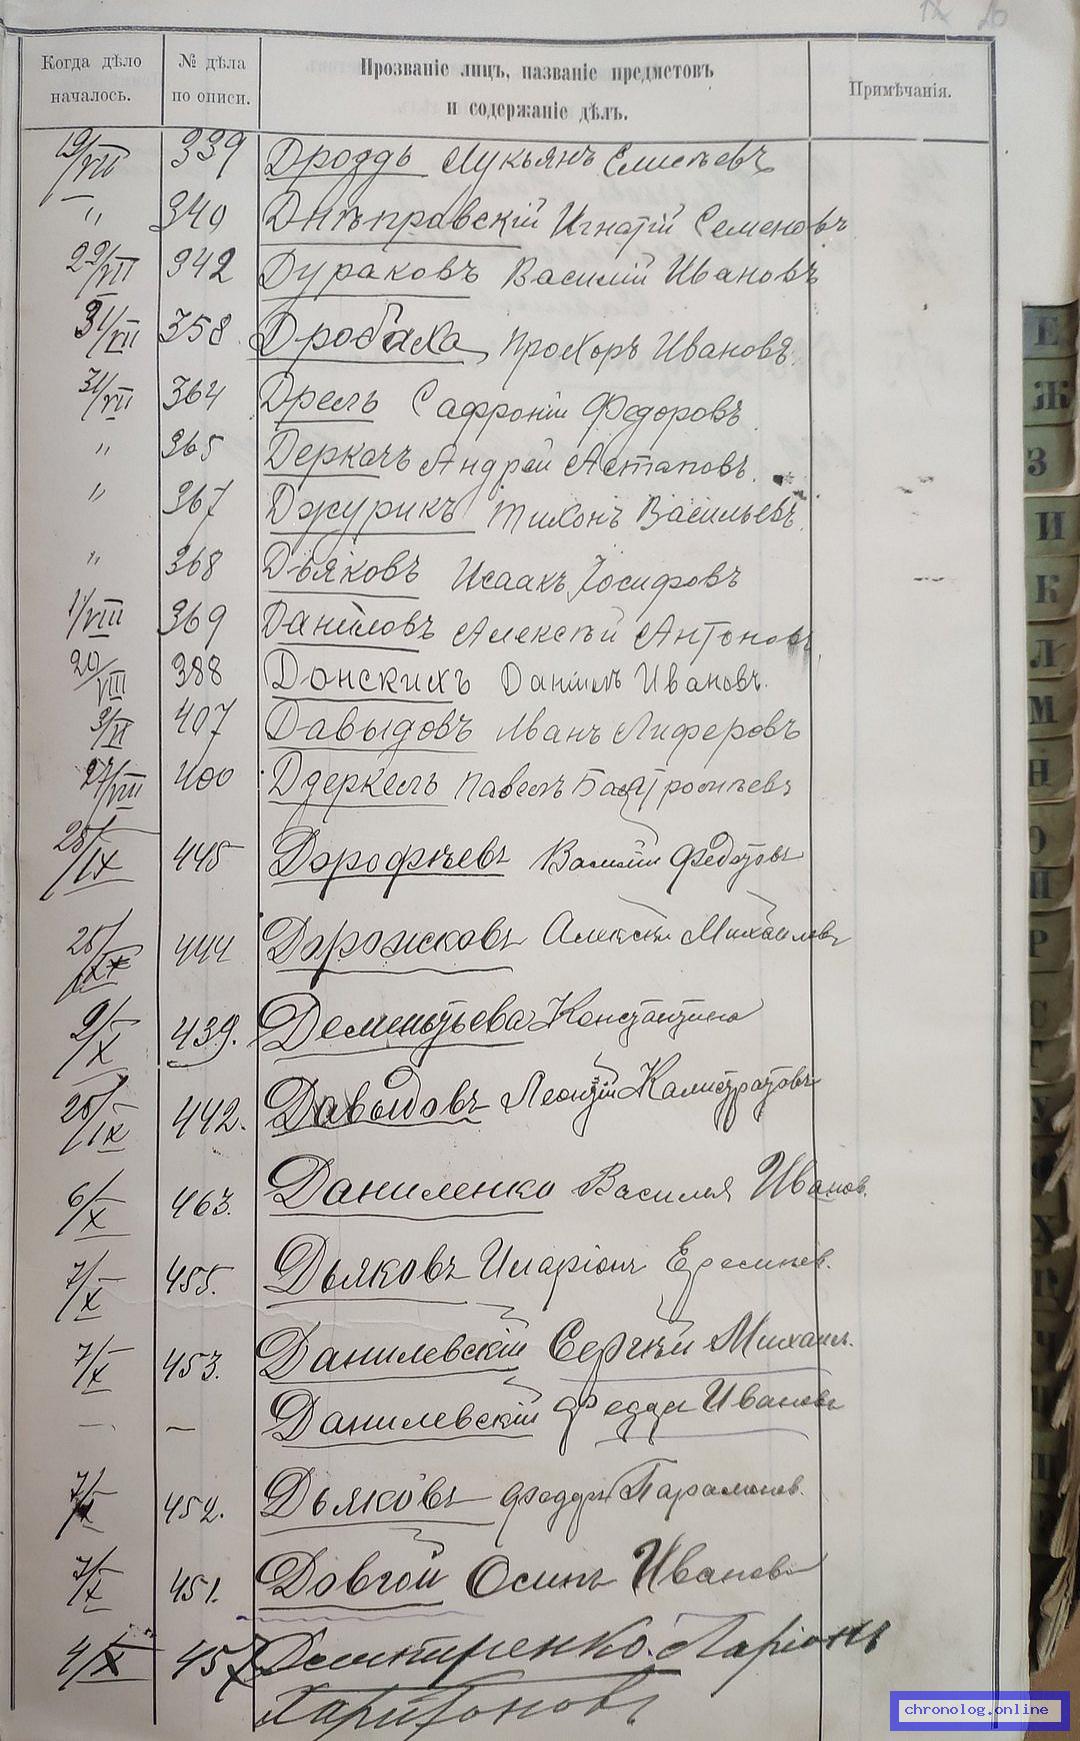 Когда дѣло началось.
№ дѣла по описи.
Прозваніе лицъ, названіе предметовъ и содержаніе дѣлъ.
Примѣчанія.
19/VII 339 Дроздъ Лукьянъ Елисѣевъ
" 340 Днѣправскій Игнатій Семеновъ
22/VII 342 Дураковъ Василій Ивановъ
31/VII 358 Дробаха Прохоръ Ивановъ
31/VII 364 Дрель Сафроній Федоровъ
" 365 Деркачъ Андрей Астаповъ
" 367 Джурикъ Тихонъ Васильевъ
" 368 Дьяковъ Исаакъ Іосифовъ
1/VIII 369 Даниловъ Алексѣй Антоновъ
20/VIII 388 Донскихъ Даніилъ Ивановъ
407 Давыдовъ Иванъ Лиферовъ
27/VIII 400 Павелъ
28/IX 445 Дорофѣевъ Василій Федотовъ
444 Дорожковъ Алексѣй Михайловъ
9/X 439. Дементьева Константина
442. Давыдовъ Леонтій Калистратовъ
6/X 463. Даниленко Василія Иванов.
7/X 455. Дьяковъ Иларіонъ
7/X 453. Данилевскій Сергѣй Михаил.
— — Данилевскій Федоръ Ивановъ
7/X 452. Дьяковъ Федоръ Парамонов.
7/X 451. Довгой Осипъ Ивановъ
4/X 457 Дмитренко Ларіонъ
Харитоновъ
Е
Ж
З
И
К
Л
М
Н
О
П
Р
С
Т
У
Х
chronolog.online